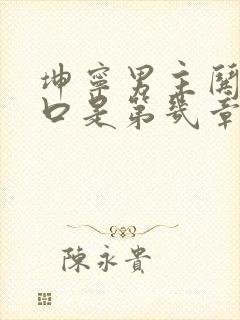 坤寧男主關
口是第幾章
陳永貴